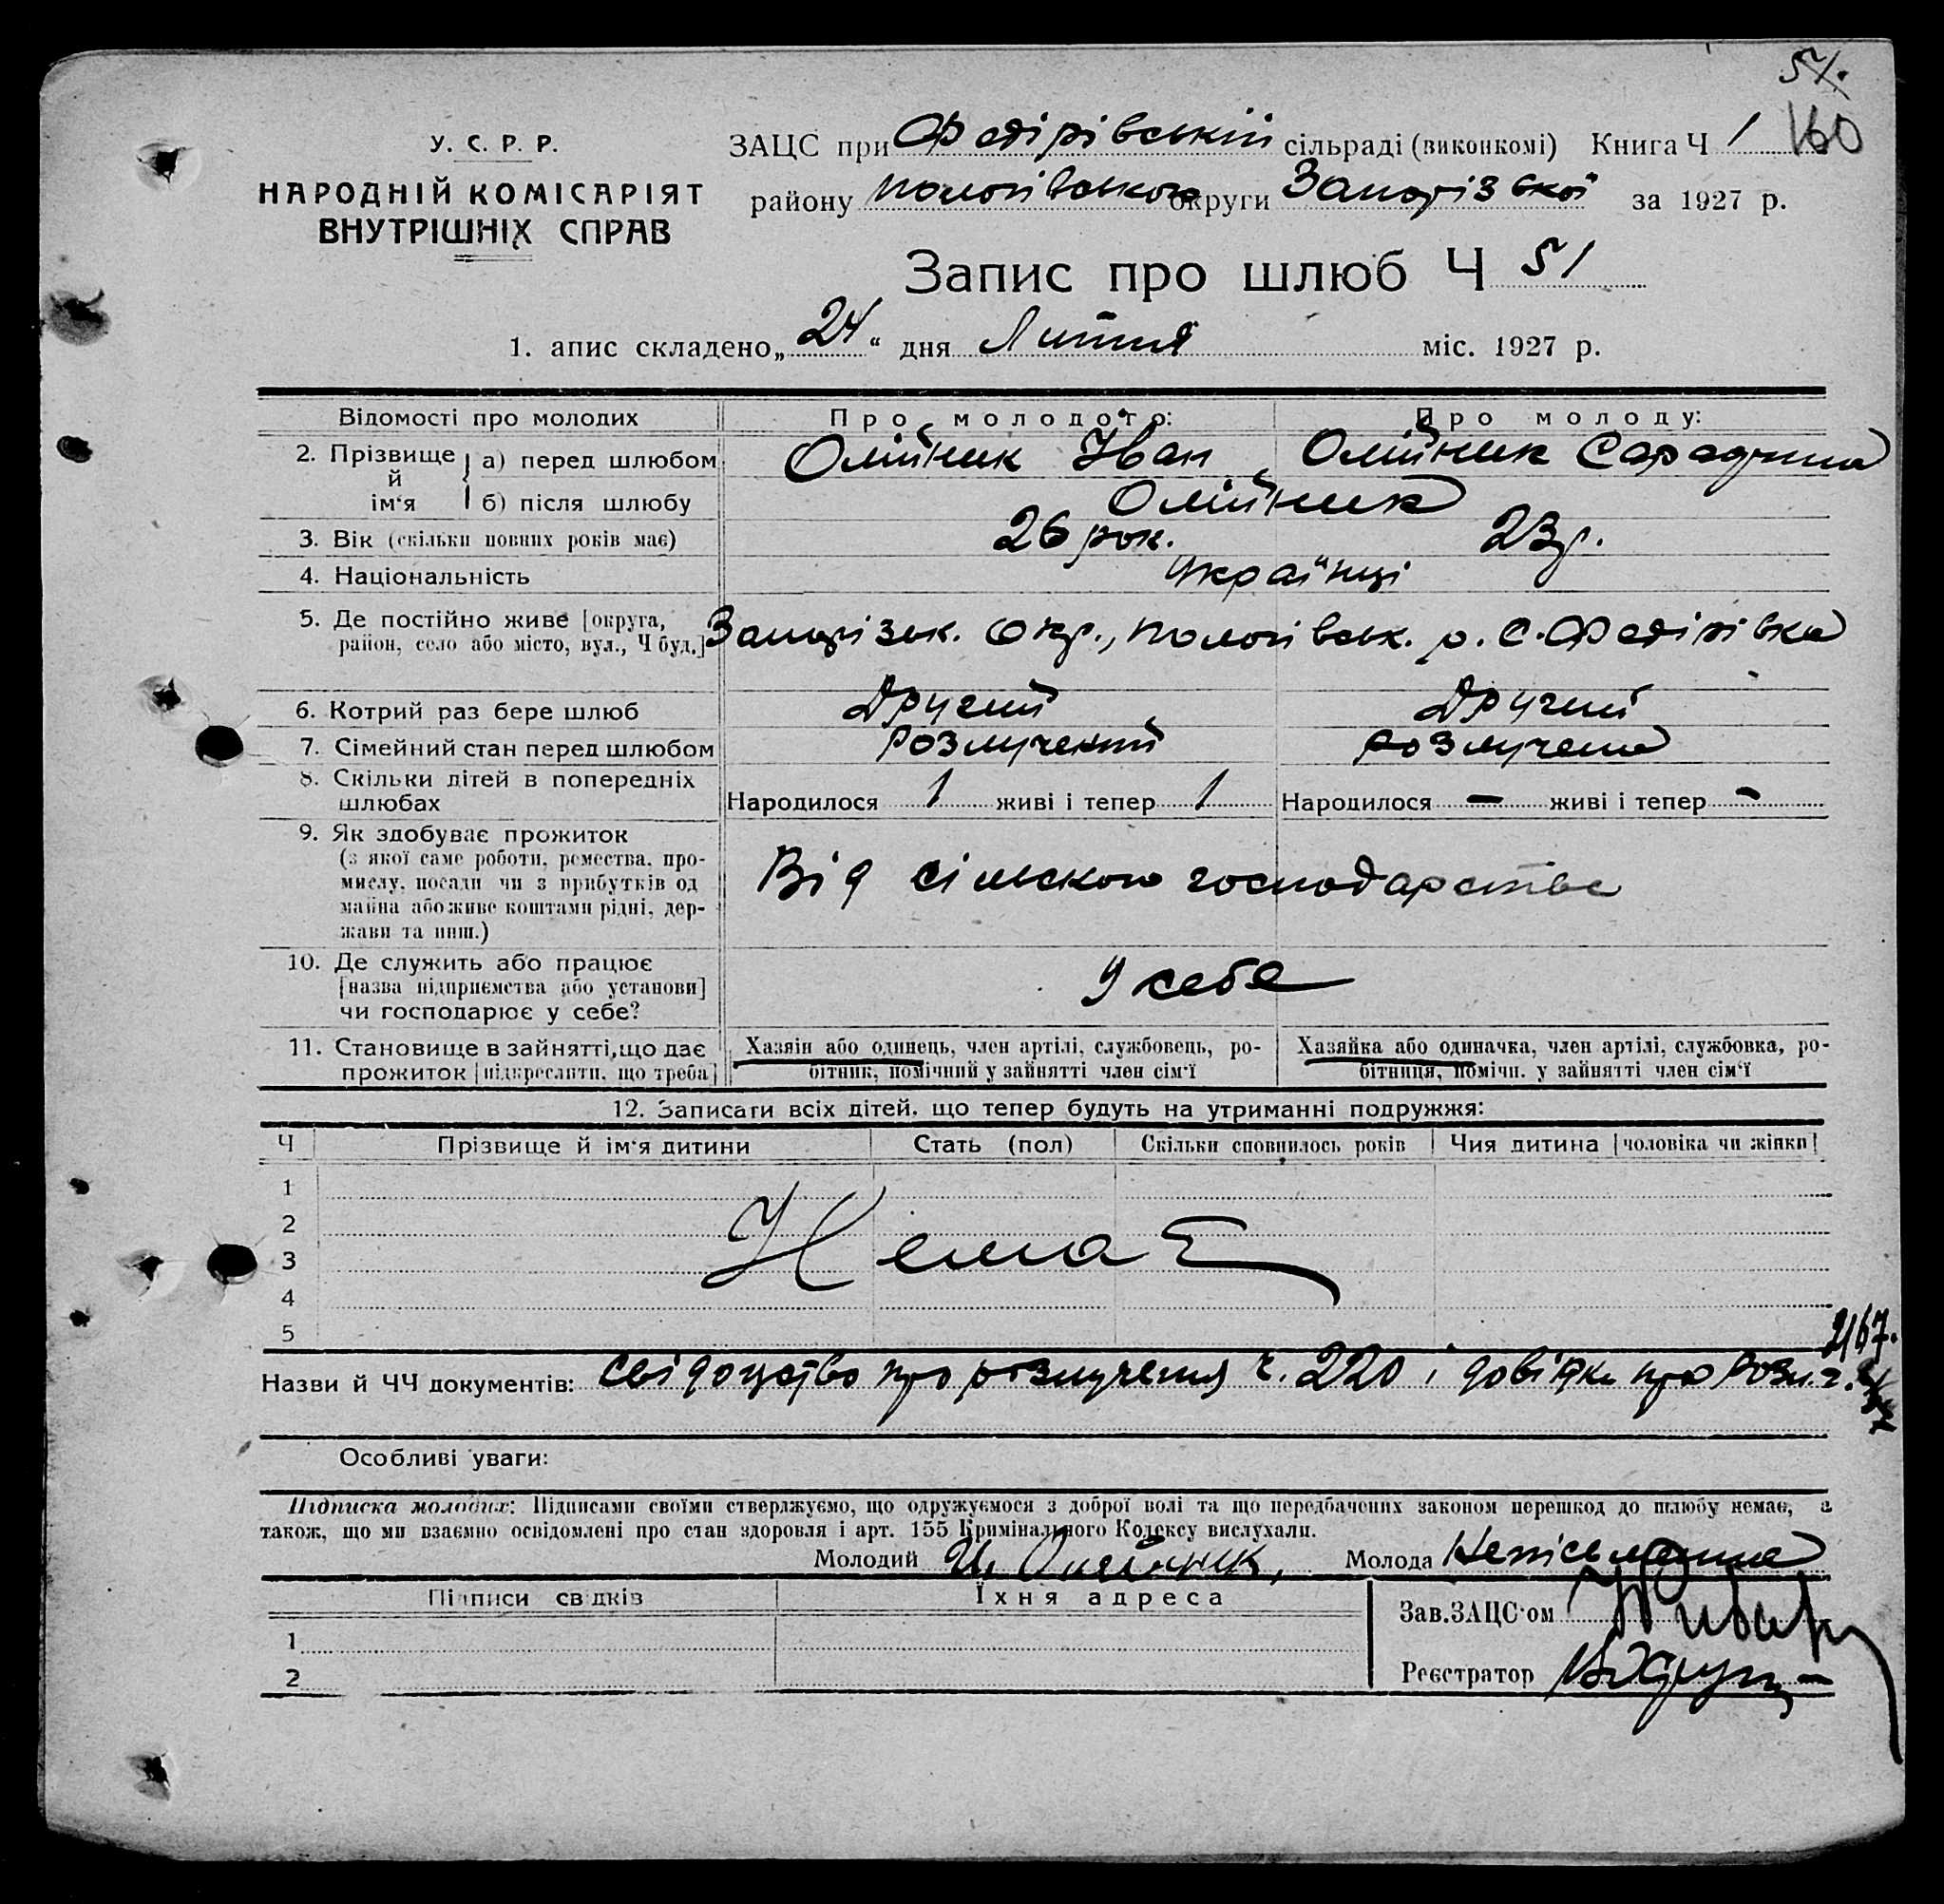 51.
160
У. С. Р. Р.
НАРОДНІЙ КОМІСАРІЯТ
ВНУТРІШНІХ СПРАВ
ЗАЦС при Федірівській сільраді (виконкомі) Книга Ч 1
району пологівського округи Запорізької за 1927 р.
Запис про шлюб Ч 51
1. апис складено „ 24 “ дня Лютня міс. 1927 р.
Відомості про молодих Про молодого: Про молоду:
2. Прізвище й ім'я а) перед шлюбом Олійник Іван Олійник
б) після шлюбу Олійник
3. Вік (скільки повних років має) 26 рок. 23 р.
4. Національність Українці
5. Де постійно живе [округа, район, село або місто, вул., Ч буд.] Запорізьк. окр., пологівськ. р. с. Федірівка
6. Котрий раз бере шлюб Другий Другий
7. Сімейний стан перед шлюбом розлучений розлучена
8. Скільки дітей в попередніх шлюбах Народилося 1 живі і тепер 1 Народилося — живі і тепер -
9. Як здобуває прожиток
(з якої саме роботи, ремества, про-
мислу, посади чи з прибутків од
майна або живе коштами рідні, дер-
жави та инш.)
Від сільского господарства
10. Де служить або працює
[назва підприємства або установи]
чи господарює у себе?
У себе
11. Становище в зайнятті, що дає
прожиток [підкреслити, що треба]
Хазяїн або одинець, член артілі, службовець, ро-
бітник, помічний у зайнятті член сім'ї
Хазяйка або одиначка, член артілі, службовка, ро-
бітниця, помічн. у зайнятті член сім'ї
12. Записати всіх дітей, що тепер будуть на утриманні подружжя:
Ч Прізвище й ім'я дитини Стать (пол) Скільки сповнилось років Чия дитина [чоловіка чи жінки]
1
2
3
4
5
Немає
Назви й ЧЧ документів: свідоцтво про розлучення ч. 220 і довідка про розл. ч.
Особливі уваги:
Підписка молодих: Підписами своїми стверджуємо, що одружуємося з доброї волі та що передбачених законом перешкод до шлюбу немає, а
також, що ми взаємно освідомлені про стан здоровля і арт. 155 Кримінального Кодексу вислухали.
Молодий И. Олейник, Молода Неписьменна
Підписи свідків Їхня адреса
1
2
Зав. ЗАЦС'ом
Реєстратор